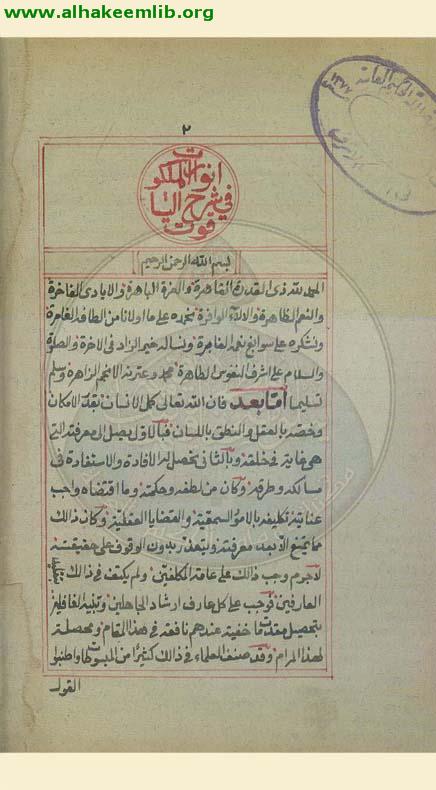 www.alhakeemlib.org
٢
انوار الملكوت
في شرح اليا
قوت
بسم الله الرحمن الرحيم
الحمد لله ذي القدرة القاهرة والعزة الباهرة والايادي الفاخرة
والنعم الظاهرة والالاء الوافرة نحمده على ما اولانا من الطافه الغامرة
ونشكره على سوابغ نعمه الغامرة ونساله خير الزاد في الاخرة والصلوة
والسلام على اشرف النفوس الطاهرة محمد وعترته الانجم الزاهرة وسلم
تسليما اما بعد فان الله تعالى كمل الانسان بقدر الامكان
وخصه بالعقل والنطق باللسان فبالاول يصل الى معرفته التي
هي غاية في خلقته وبالثاني تحصل له الافادة والاستفادة في
مسالكه وطرقه وكان من لطفه وحكمته وما اقتضاه واجب
عنايته تكليفه بالامور السمعية والقضايا العقلية وكان ذالك
مما يمتنع الا بعد معرفته ويتعذر بدون الوقوف على حقيقته
لاجرم وجب ذالك على عامة المكلفين ولم يكتف في ذالك
العارفين فوجب على كل عارف ارشاد الجاهلين وتنبيه الغافلين
بتحصيل مقدمات خفية عندهم نافعة في هذا المقام ومحصلة
لهذا المرام وقد صنف العلماء في ذالك كثيرا من المبسوطات واطنبوا
القول